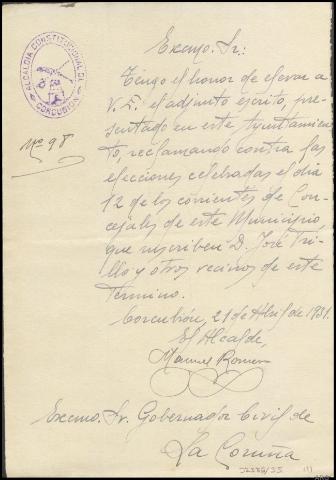 ALCALDIA CONSTITUCIONAL DE
CORCUBION
Nº 98
Excmo. Sr:
Tengo el honor de elevar a
V.E. el adjunto escrito, pre-
sentado en este Ayuntamien-
to, reclamando contra las
elecciones celebradas el dia
12 de los corrientes de Con-
cejales de este Municipio,
que suscriben D. José Tri-
llo y otros vecinos de este
Término.
Corcubión, 21 de Abril de 1931.
El Alcalde,
Manuel Romero
Excmo. Sr. Gobernador Civil de
La Coruña